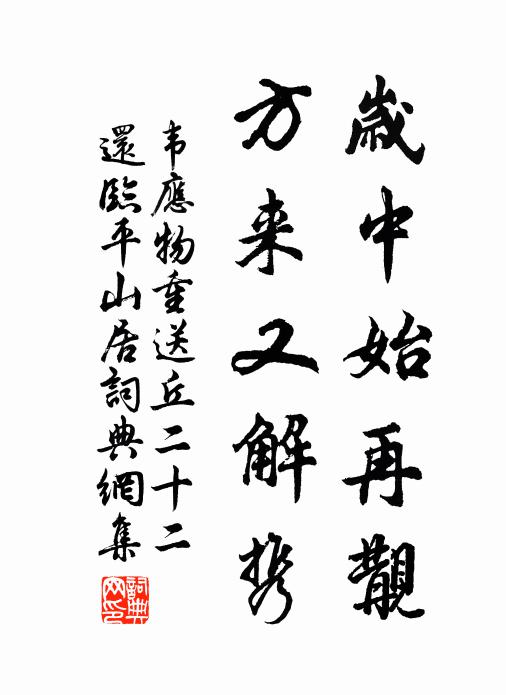 歲中始再覯
方来又解携
韦應物重送丘二十二
還臨平山居詞典網集
詞典
网印